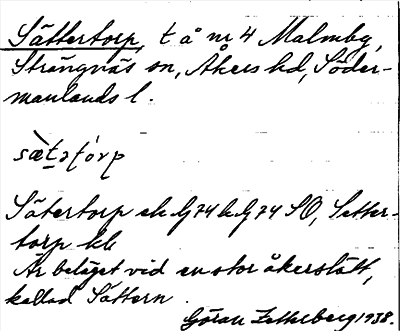 Sättertorp, t å nr 4 Malmby,
Strängnäs sn, Åkers hd, Söder-
manlands l.
sæ̀tətórp
Sätertorp ek G74 k G74 SO, Setter-
torp kb
Är beläget vid en stor åkerslätt,
kallad Sättern.
Göran Zetterberg 1938.